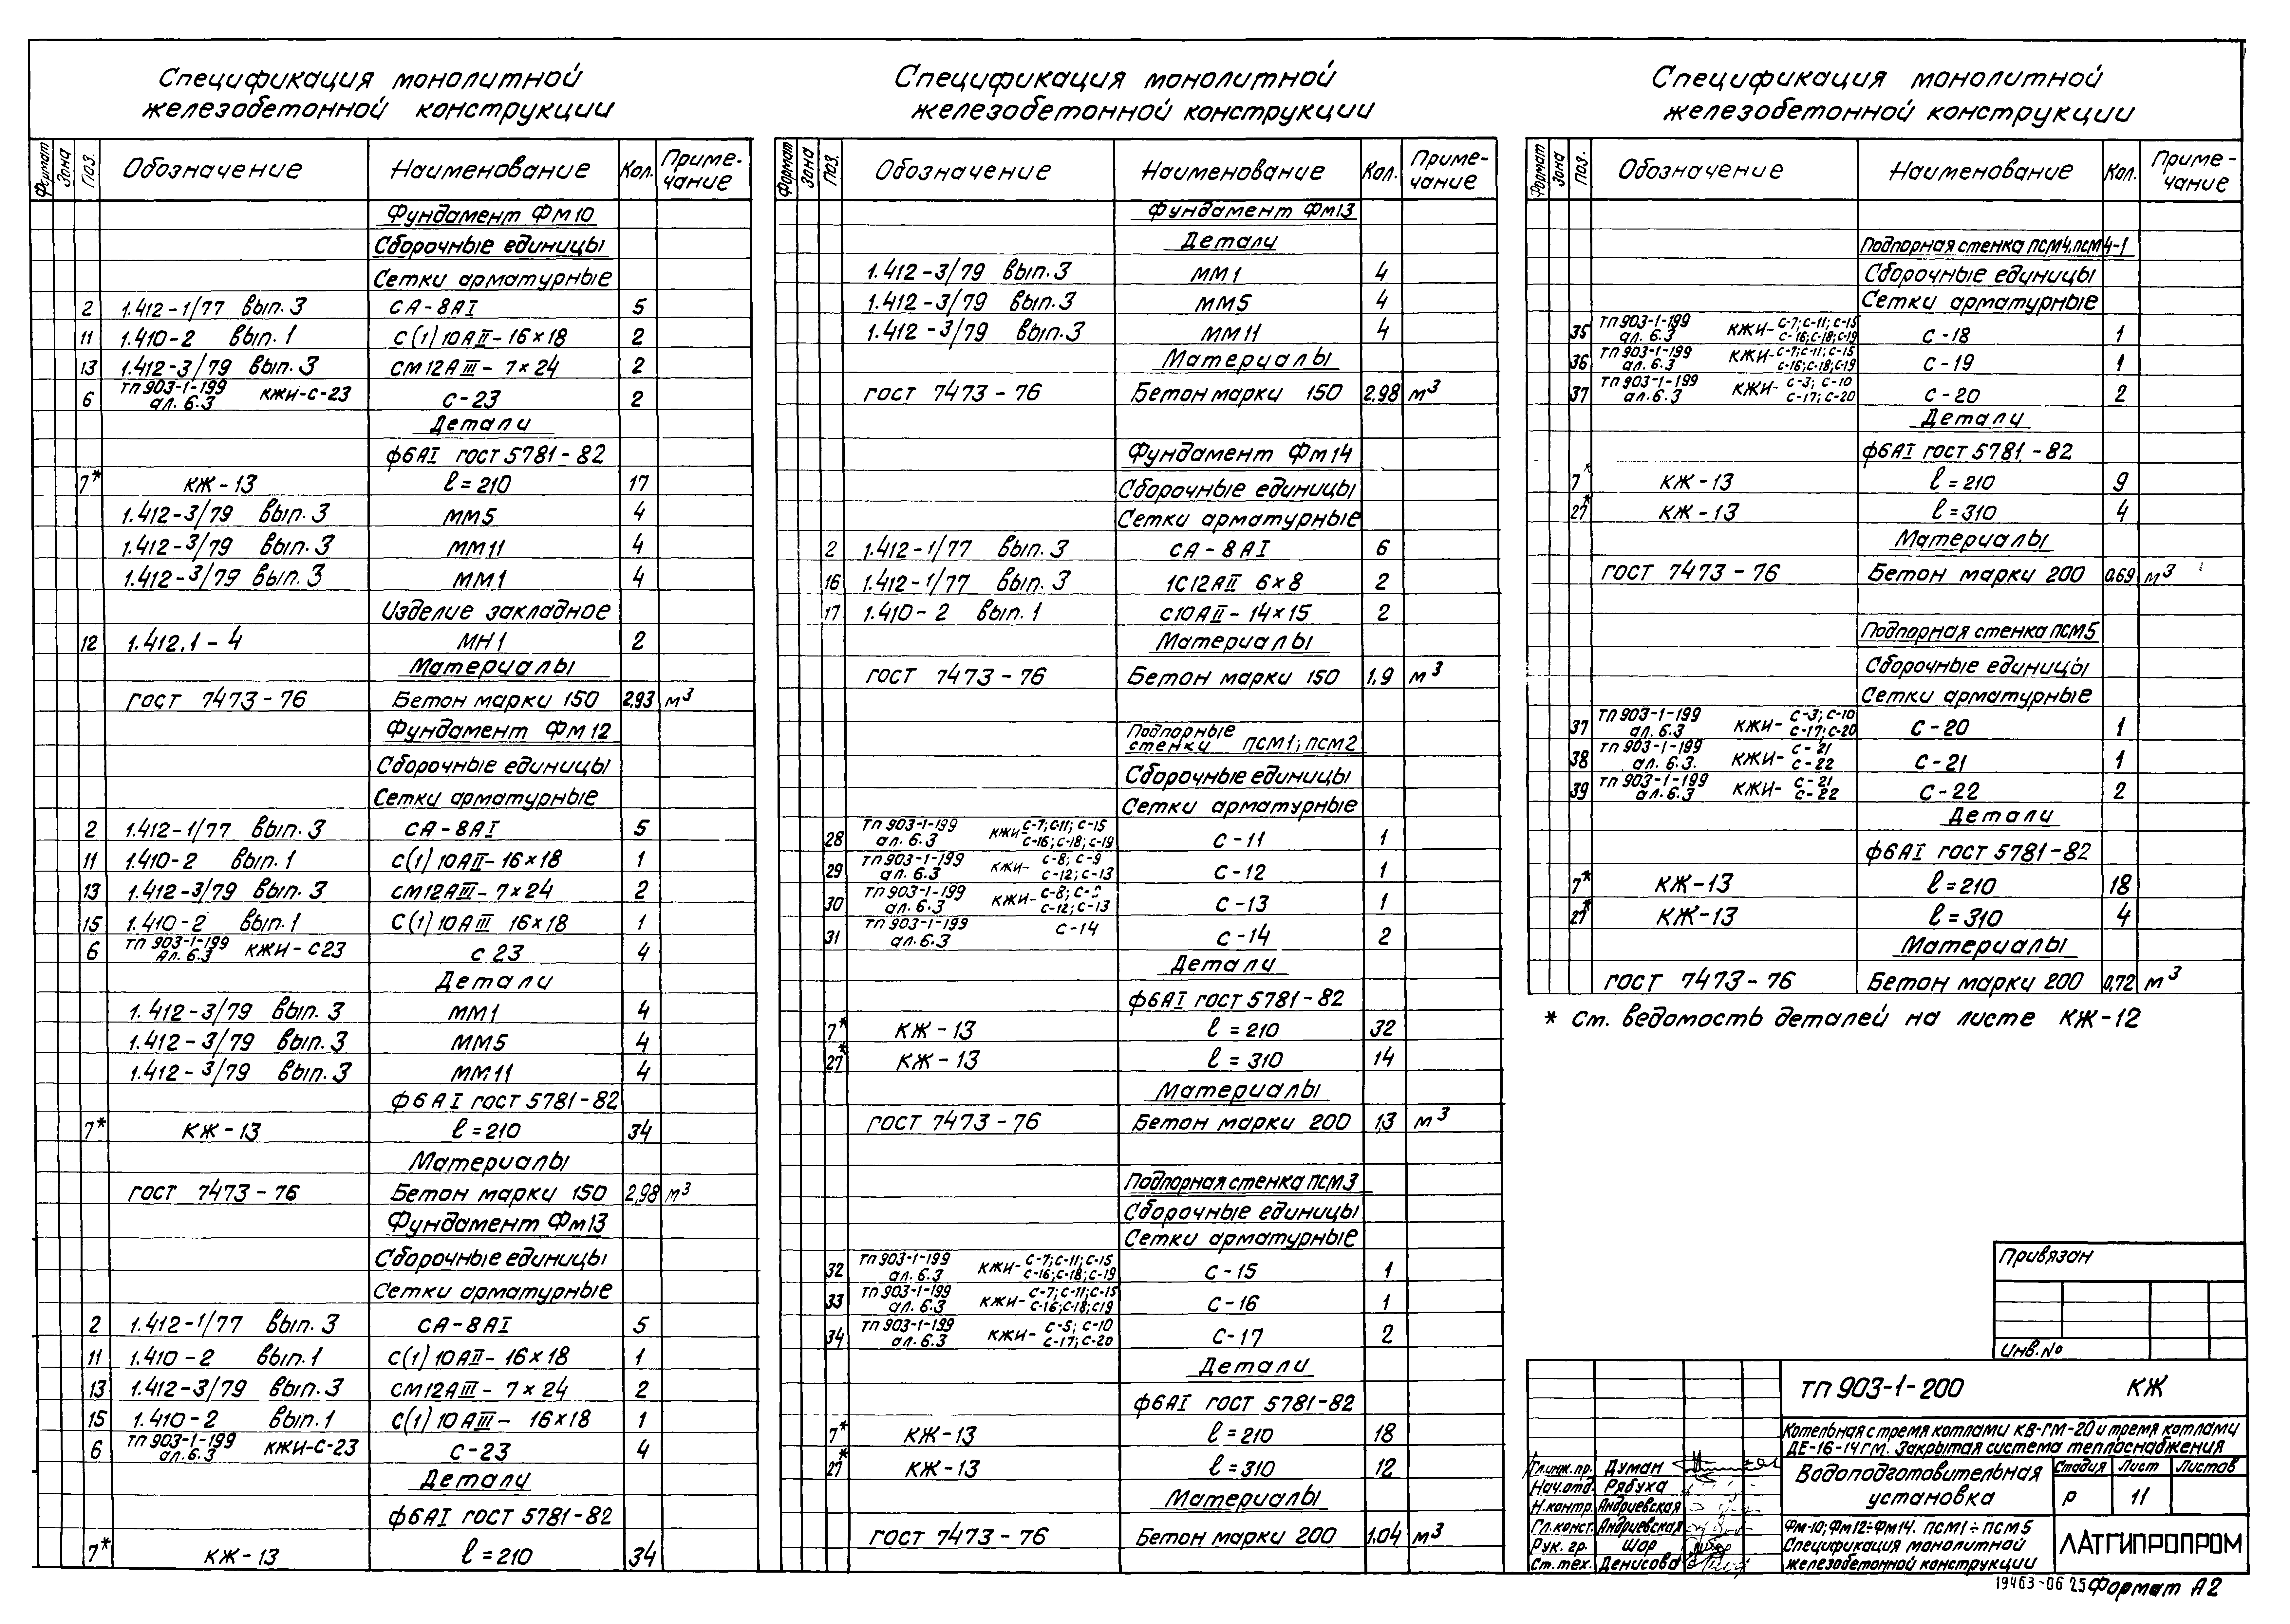 Спецификация монолитной
железобетонной конструкции
Формат Зона Поз. Обозначение Наименование Кол. Приме-
чание
Фундамент Фм10
Сборочные единицы
Сетки арматурные
2 1.412-1/77 вып.3 СА-8АI 5
11 1.410-2 вып.1 С(1)10АII-16×18 2
13 1.412-3/79 вып.3 СМ12АIII-7×24 2
6 ТП903-1-199 ал.6.3 КЖИ-С-23 С-23 2
Детали
ф6АI ГОСТ 5781-82
7* КЖ-13 ℓ=210 17
1.412-3/79 вып.3 ММ5 4
1.412-3/79 вып.3 ММ11 4
1.412-3/79 вып.3 ММ1 4
Изделие закладное
12 1.412.1-4 МН1 2
Материалы
ГОСТ 7473-76 Бетон марки 150 2,93 м³
Фундамент Фм12
Сборочные единицы
Сетки арматурные
2 1.412-1/77 вып.3 СА-8АI 5
11 1.410-2 вып.1 С(1)10АII-16×18 1
13 1.412-3/79 вып.3 СМ12АIII-7×24 2
15 1.410-2 вып.1 С(1)10АIII 16×18 1
6 ТП 903-1-199 Ал.6.3 КЖИ-С23 С 23 4
Детали
1.412-3/79 вып.3 ММ1 4
1.412-3/79 вып.3 ММ5 4
1.412-3/79 вып.3 ММ11 4
ф6АI ГОСТ 5781-82
7* КЖ-13 ℓ=210 34
Материалы
ГОСТ 7473-76 Бетон марки 150 2,98 м³
Фундамент Фм13
Сборочные единицы
Сетки арматурные
2 1.412-1/77 вып.3 СА-8АI 5
11 1.410-2 вып.1 С(1)10АII-16×18 1
13 1.412-3/79 вып.3 СМ12АIII-7×24 2
15 1.410-2 вып.1 С(1)10АIII-16×18 1
6 ТП 903-1-199 ал.6.3 КЖИ-С-23 С-23 4
Детали
ф6АI ГОСТ 5781-82
7* КЖ-13 ℓ=210 34
Спецификация монолитной
железобетонной конструкции
Формат Зона Поз. Обозначение Наименование Кол. Приме-
чание
Фундамент Фм13
Детали
1.412-3/79 вып.3 ММ1 4
1.412-3/79 вып.3 ММ5 4
1.412-3/79 вып.3 ММ11 4
Материалы
ГОСТ 7473-76 Бетон марки 150 2,98 м³
Фундамент Фм14
Сборочные единицы
Сетки арматурные
2 1.412-1/77 вып.3 СА-8АI 6
16 1.412-1/77 вып.3 1С12АII 6×8 2
17 1.410-2 вып.1 С10АII-14×15 2
Материалы
ГОСТ 7473-76 Бетон марки 150 1,9 м³
Подпорные
стенки ПСМ1; ПСМ2
Сборочные единицы
Сетки арматурные
28 ТП 903-1-199 ал.6.3 КЖИ-С-7;С-11;С-15 С-16;С-18;С-19 С-11 1
29 ТП 903-1-199 ал.6.3 КЖИ-С-8;С-9 С-12;С-13 С-12 1
30 ТП 903-1-199 ал.6.3 КЖИ-С-8; С-12;С-13 С-13 1
31 ТП 903-1-199 ал.6.3 С-14 С-14 2
Детали
ф6АI ГОСТ 5781-82
7* КЖ-13 ℓ=210 32
27* КЖ-13 ℓ=310 14
Материалы
ГОСТ 7473-76 Бетон марки 200 1,3 м³
Подпорная стенка ПСМ3
Сборочные единицы
Сетки арматурные
32 ТП 903-1-199 ал.6.3 КЖИ-С-7;С-11;С-15 С-16;С-18;С-19 С-15 1
33 ТП 903-1-199 ал.6.3 КЖИ-С-7;С-11;С-15 С-16;С-18;С19 С-16 1
34 ТП 903-1-199 ал.6.3 КЖИ-С-5;С-10 С-17;С-20 С-17 2
Детали
ф6АI ГОСТ 5781-82
7* КЖ-13 ℓ=210 18
27* КЖ-13 ℓ=310 12
Материалы
ГОСТ 7473-76 Бетон марки 200 1,04 м³
Спецификация монолитной
железобетонной конструкции
Формат Зона Поз. Обозначение Наименование Кол. Приме-
чание
Подпорная стенка ПСМ4,ПСМ4-1
Сборочные единицы
Сетки арматурные
35 ТП 903-1-199 ал.6.3 КЖИ-С-7;С-11;С-15 С-16;С-18;С-19 С-18 1
36 ТП 903-1-199 ал.6.3 КЖИ-С-7;С-11;С-15 С-16;С-18;С-19 С-19 1
37 ТП 903-1-199 ал.6.3 КЖИ-С-3;С-10 С-17;С-20 С-20 2
Детали
ф6АI ГОСТ 5781-82
7* КЖ-13 ℓ=210 9
27* КЖ-13 ℓ=310 4
Материалы
ГОСТ 7473-76 Бетон марки 200 0,69 м³
Подпорная стенка ПСМ5
Сборочные единицы
Сетки арматурные
37 ТП 903-1-199 ал.6.3 КЖИ-С-3;С-10 С-17;С-20 С-20 1
38 ТП 903-1-199 ал.6.3. КЖИ-С-21 С-22 С-21 1
39 ТП 903-1-199 ал.6.3 КЖИ-С-21 С-22 С-22 2
Детали
ф6АI ГОСТ 5781-82
7* КЖ-13 ℓ=210 18
27* КЖ-13 ℓ=310 4
Материалы
ГОСТ 7473-76 Бетон марки 200 0,72 м³
* см. ведомость деталей на листе КЖ-12
Привязан
Инв.№
ТП 903-1-200 КЖ
Котельная с тремя котлами КВ-ГМ-20 и тремя котлами
ДЕ-16-14ГМ. Закрытая система теплоснабжения
Гл.инж.пр. Думан
Нач.отд. Рябуха
Н.контр. Андриевская
Гл.конст. Андриевская
Рук. гр. Шор
Ст.тех. Денисова
Водоподготовительная
установка
Стадия Лист Листов
Р 11
Фм-10; Фм12÷Фм14. ПСМ1÷ПСМ5
Спецификация монолитной
железобетонной конструкции
ЛАТГИПРОПРОМ
19463-06 25 Формат А2